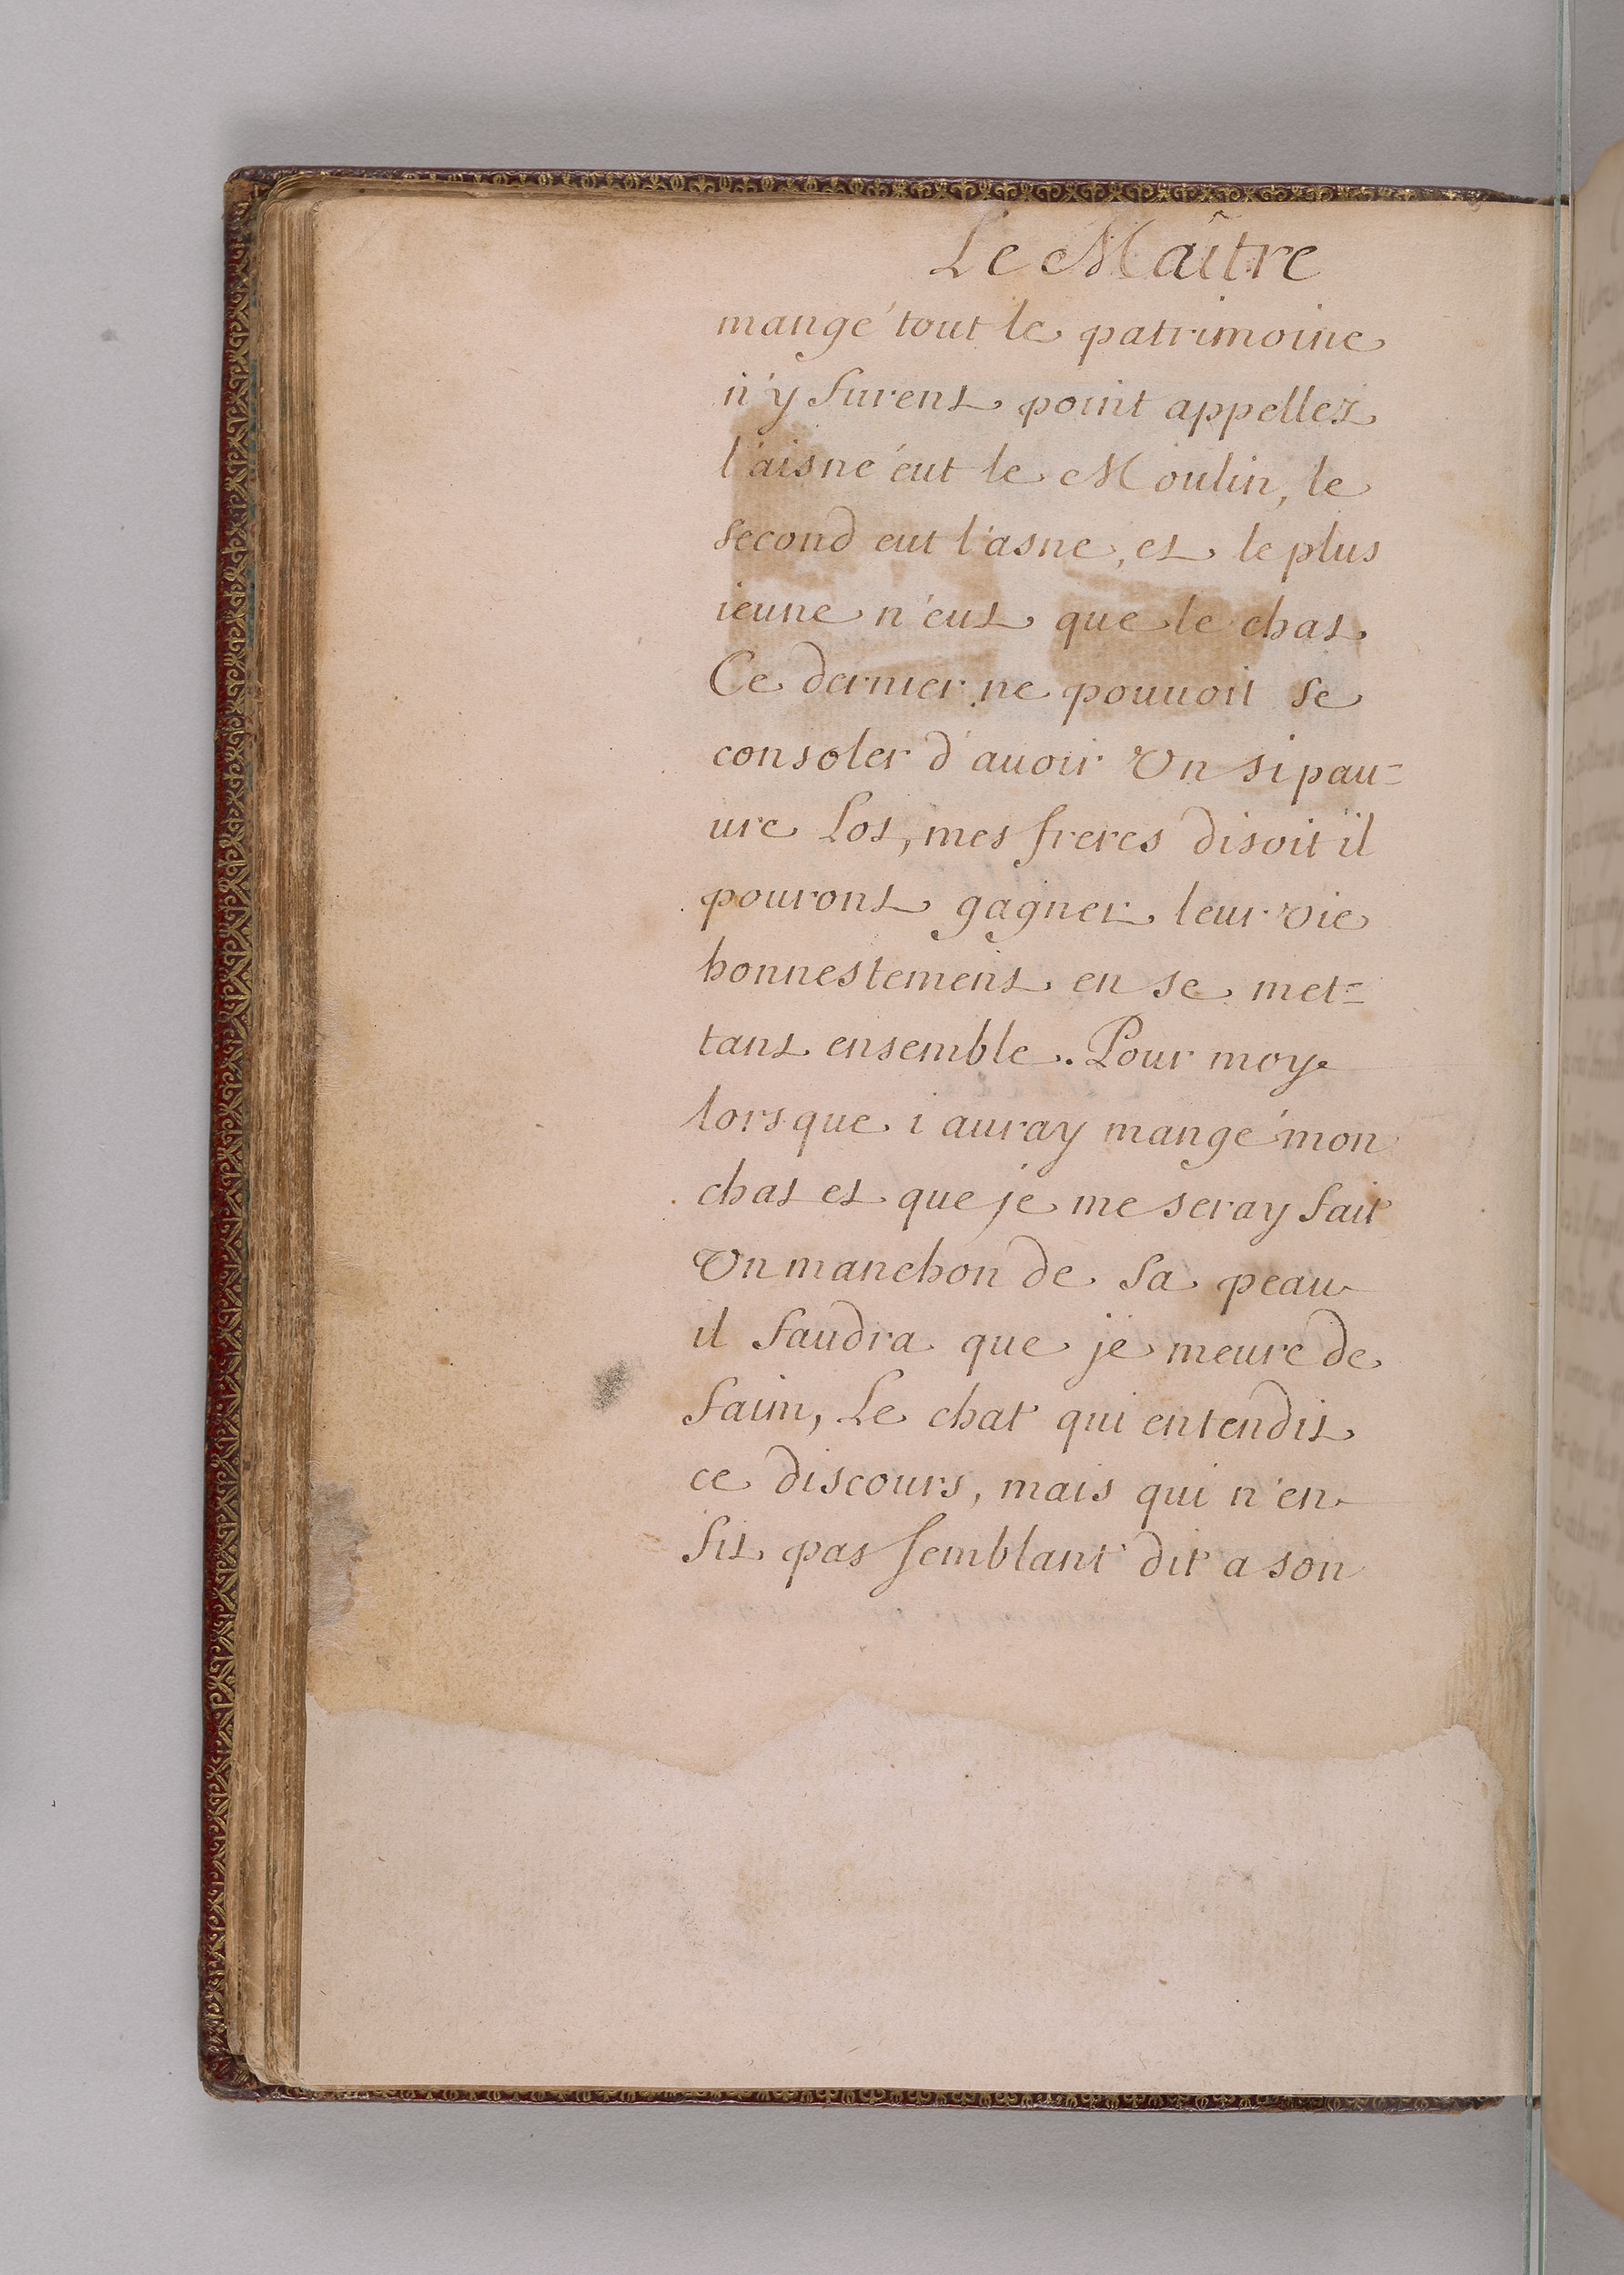 Le Maître
mangé tout le patrimoine
n'y furent point appellez
l'aisné eut le Moulin, le
second eut l'asne, et le plus
ieune n'eut que le chat
Ce dernier ne pouuoit se
consoler d'auoir Un si pau=
ure Lot, mes freres disoit il
pouront gagner leur vie
honnestement en se met=
tant ensemble. Pour moy
lorsque i auray mangé mon
chat et que je me seray fait
Un manchon de sa peau
il faudra que je meure de
faim, Le chat qui entendit
ce discours, mais qui n'en
fit pas semblant dit a son